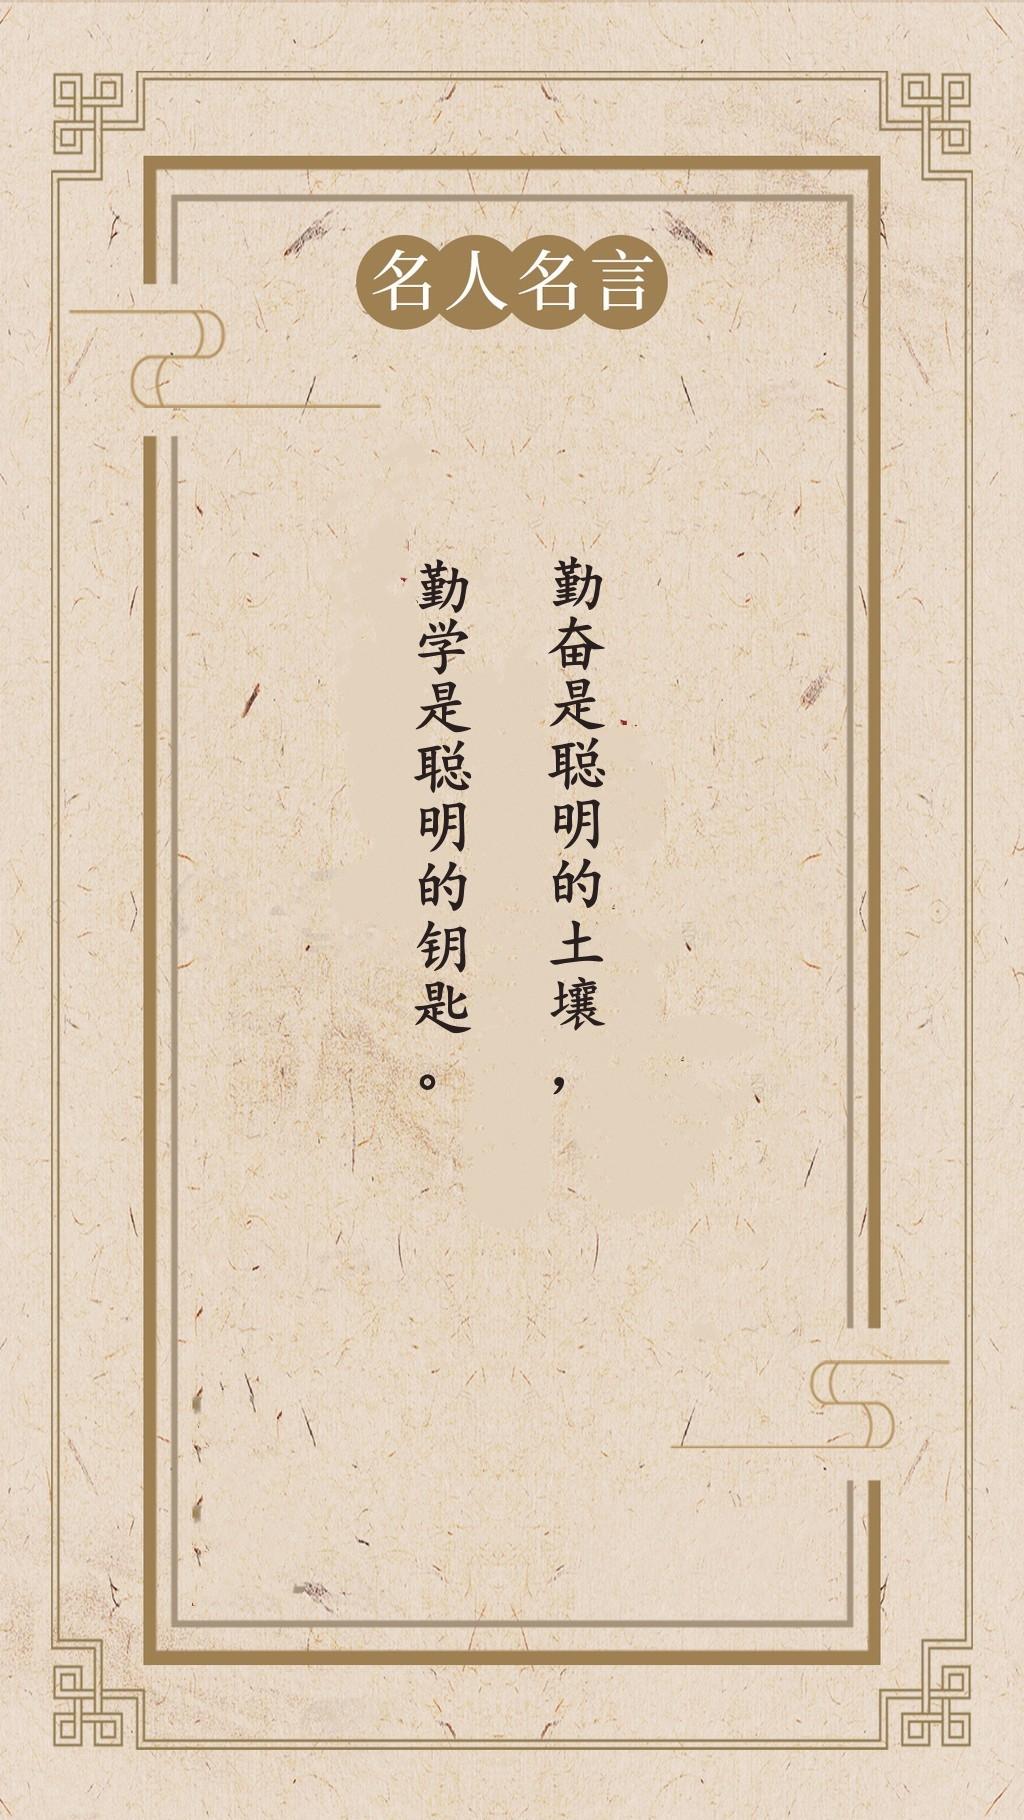 名人名言
勤奋是聪明的土壤，
勤学是聪明的钥匙。